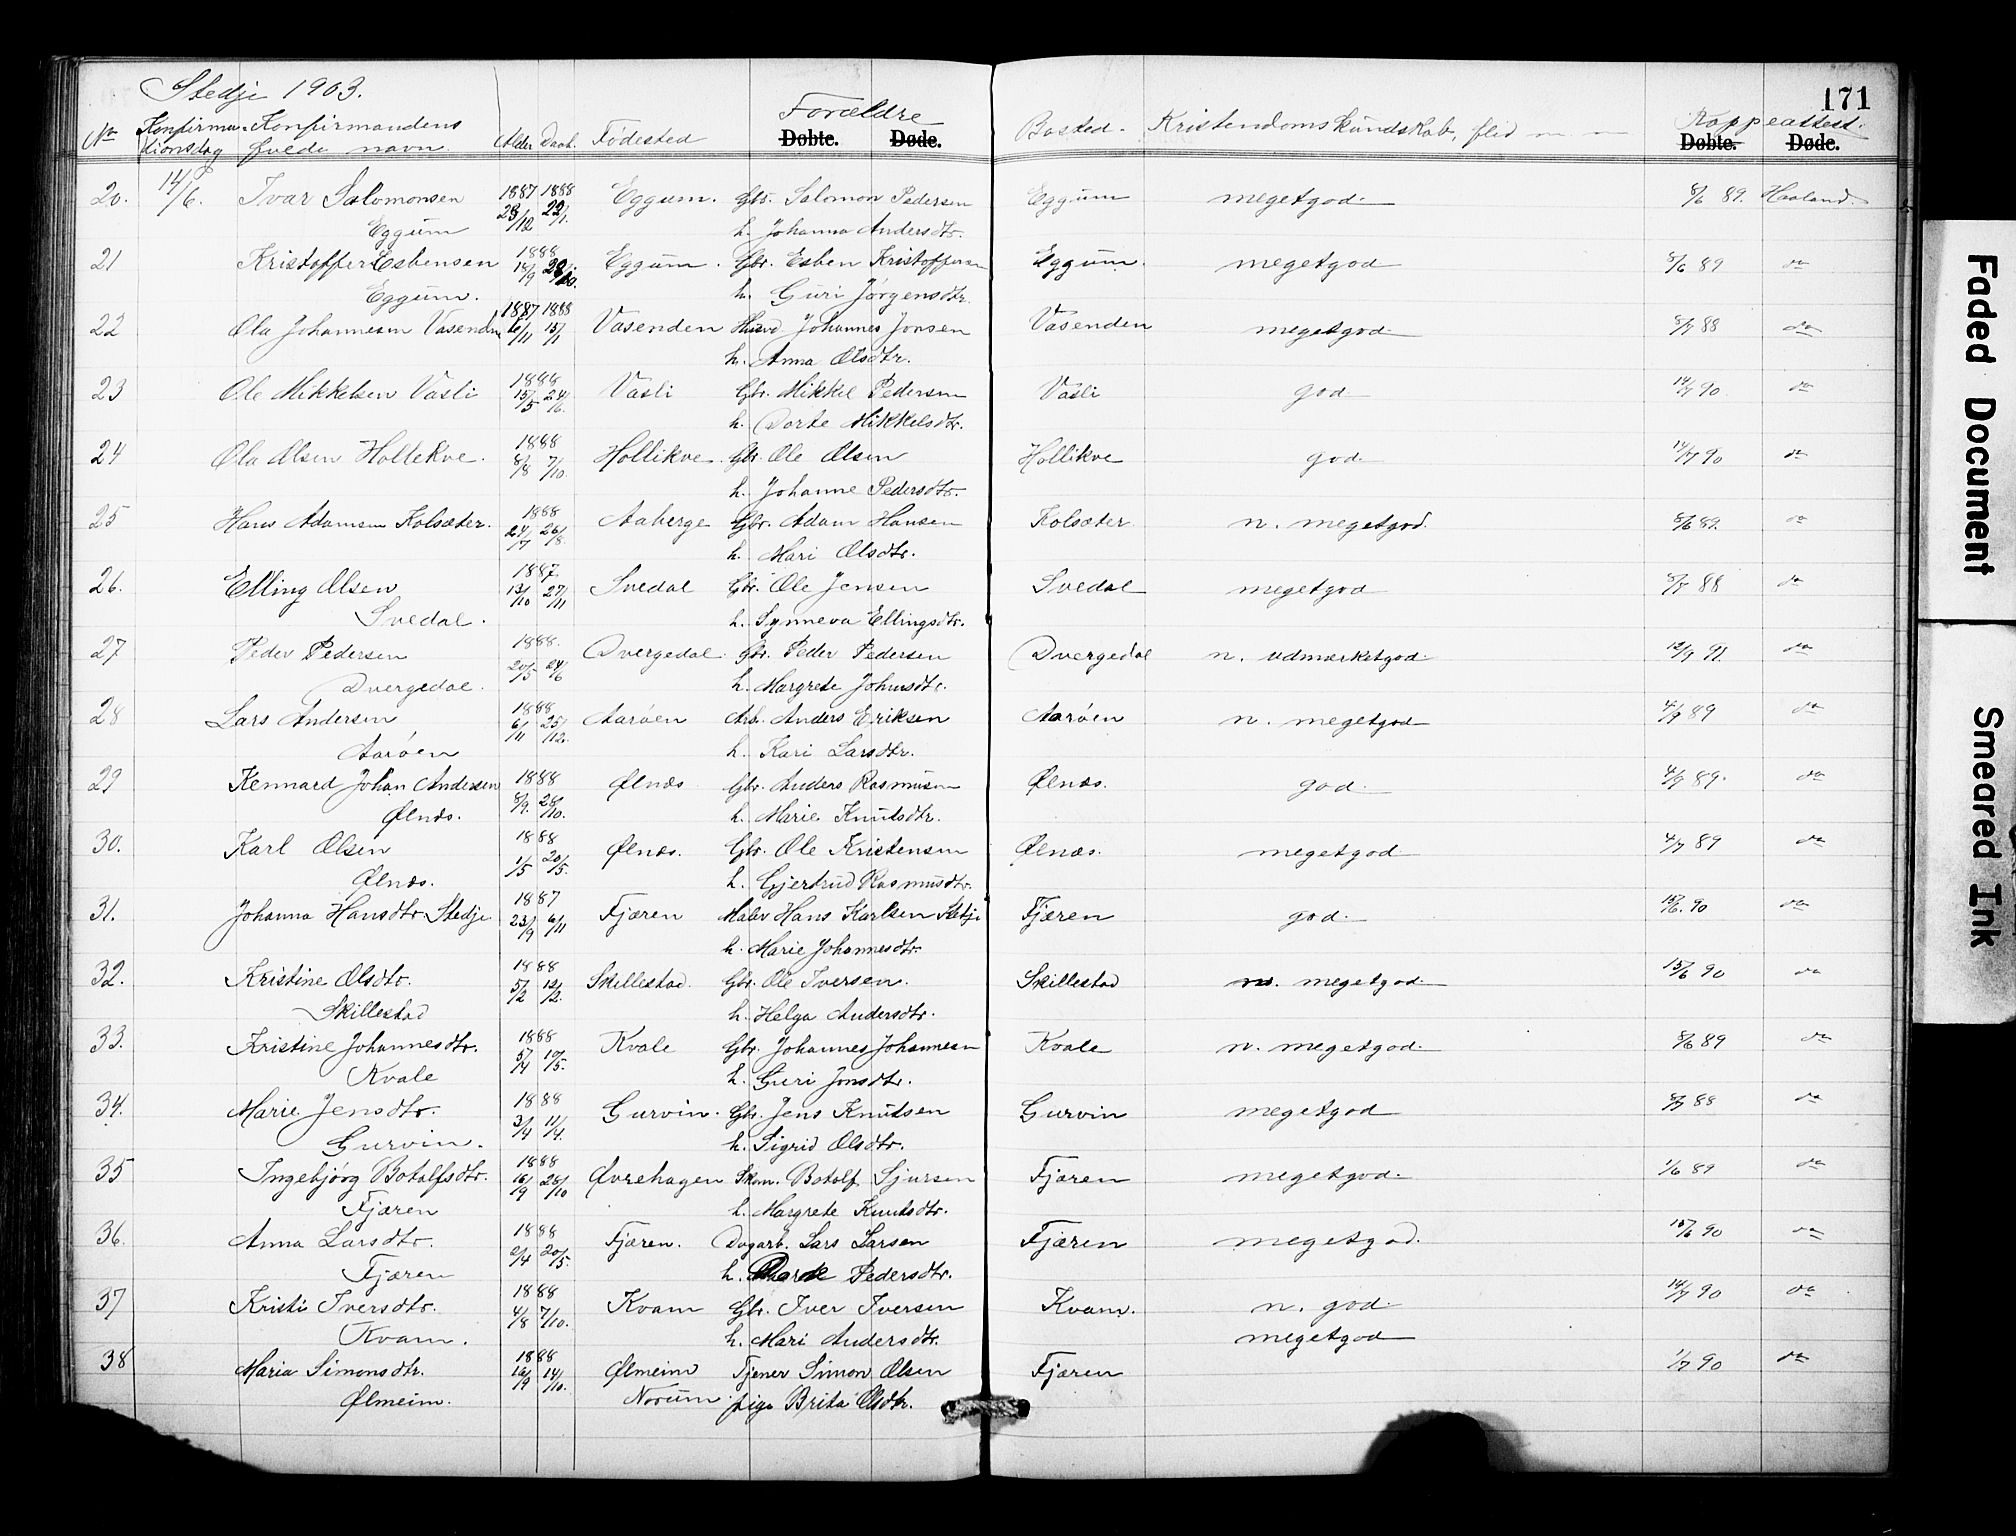 171
Stedje 1903.
No Konfirma- Konfirmandens Alder Daab. Fødested Forældre Bosted. Kristendomskundskab, flid m. m Koppeattest.
tionsdag fulde navn Døbte. Døde. Døbte. Døde.
20. 14/6. Ivar Salomonsen 1887 1888 Eggum. Gbr. Salomon Pedersen Eggum megetgod. 8/6 89. Haaland.
Eggum 28/12 22/1. h. Johanna Andersdtr.
21 Kristoffer Esbensen 1888 Eggum. Gbr. Esben Kristoffersen Eggum. megetgod 8/6 89 do
Eggum. 14/9 h. Guri Jørgensdtr.
22 Ola Johannesen Vasenden 1887 1888 Vasenden Husmd Johannes Jonsen Vasenden megetgod 8/7 88 do
6/11 15/1 h. Anna Olsdtr.
23 Ole Mikkelsen Vasli 1888 Vasli Gbr. Mikkel Pedersen Vasli god. 14/7 90 do
15/5 24/6. h. Dorte Mikkelsdtr.
24 Ola Olsen Hollekve. 1888 Hollikve. Gbr. Ole Olsen Hollikve god 14/7 90 do
8/8 7/10. h. Johanne Pedersdtr.
25 Hans Adamsen Kolsæter. 1888 Aaberge Gbr. Adam Hansen Kolsæter n. megetgod. 8/6 89. do
24/7 26/8. h. Mari Olsdtr.
26. Elling Olsen 1887 Svedal Gbr. Ole Jensen Svedal megetgod 8/7 88 do
Svedal. 13/10 27/11 h. Synneva Ellingsdtr.
27 Peder Pedersen 1888. Dvergedal. Gbr. Peder Pedersen Dvergedal n. udmærketgod. 12/9 91. do
Dvergedal. 20/5 24/6 h. Margrete Johnsdtr.
28 Lars Andersen 1888 Aarøen Arb. Anders Eriksen Aarøen n. megetgod 4/9 89 do
Aarøen 6/11 25/12. h. Kari Larsdtr.
29 Kennard Johan Andersen 1888 Ølnæs Gbr. Anders Rasmusen Ølnæs. god. 4/9 89. do
Ølnæs. 8/9. 28/10. h. Marie Knutsdtr.
30. Karl Olsen 1888 Ølnæs. Gbr. Ole Kristensen Ølnæs. megetgod 4/7 89 do
Ølnæs. 1/5 20/5. h. Gjertrud Rasmusdtr.
31. Johanna Hansdtr. Stedje 1887 Fjæren Maler Hans Karlsen Stedje Fjæren god. 15/6. 90 do
23/9 6/11 h. Marie Johannesdtr.
32. Kristine Olsdtr. 1888 Skillestad. Gbr. Ole Iversen. Skillestad n. megetgod. 15/6 90 do
Skillestad 5/2 12/2. h. Helga Andersdtr.
33. Kristine Johannesdtr. 1888 Kvale Gbr. Johannes Johannesen Kvale n. megetgod. 8/6 89 do
Kvale 5/4 10/5. h. Guri Jonsdtr.
34. Marie Jensdtr. 1888 Gurvin. Gbr. Jens Knutsen Gurvin megetgod 8/7 88 do
Gurvin. 3/4 11/4. h. Sigrid Olsdtr.
35 Ingebjørg Botolfsdtr. 1888 Øvrehagen Skom. Botolf Sjursen Fjæren megetgod. 1/6 89 do
Fjæren 16/9 28/10 h. Margrete Knutsdtr.
36. Anna Larsdtr. 1888 Fjæren. Dagarb. Lars Larsen Fjæren megetgod. 15/6 90 do
Fjæren 2/4 20/5. h. Pedersdtr.
37 Kristi Iversdtr. 1888 Kvam Gbr. Iver Iversen Kvam. n. god. 14/7 90 do
Kvam. 4/8 7/10. h. Mari Andersdtr. megetgod
38 Maria Simonsdtr. 1888 Ølmeim Tjener Simon Olsen Fjæren 1/7 90 do
Ølmeim. 16/9 14/10. Norum. pige Brita Olsdtr.
Faded Document
Smeared Ink